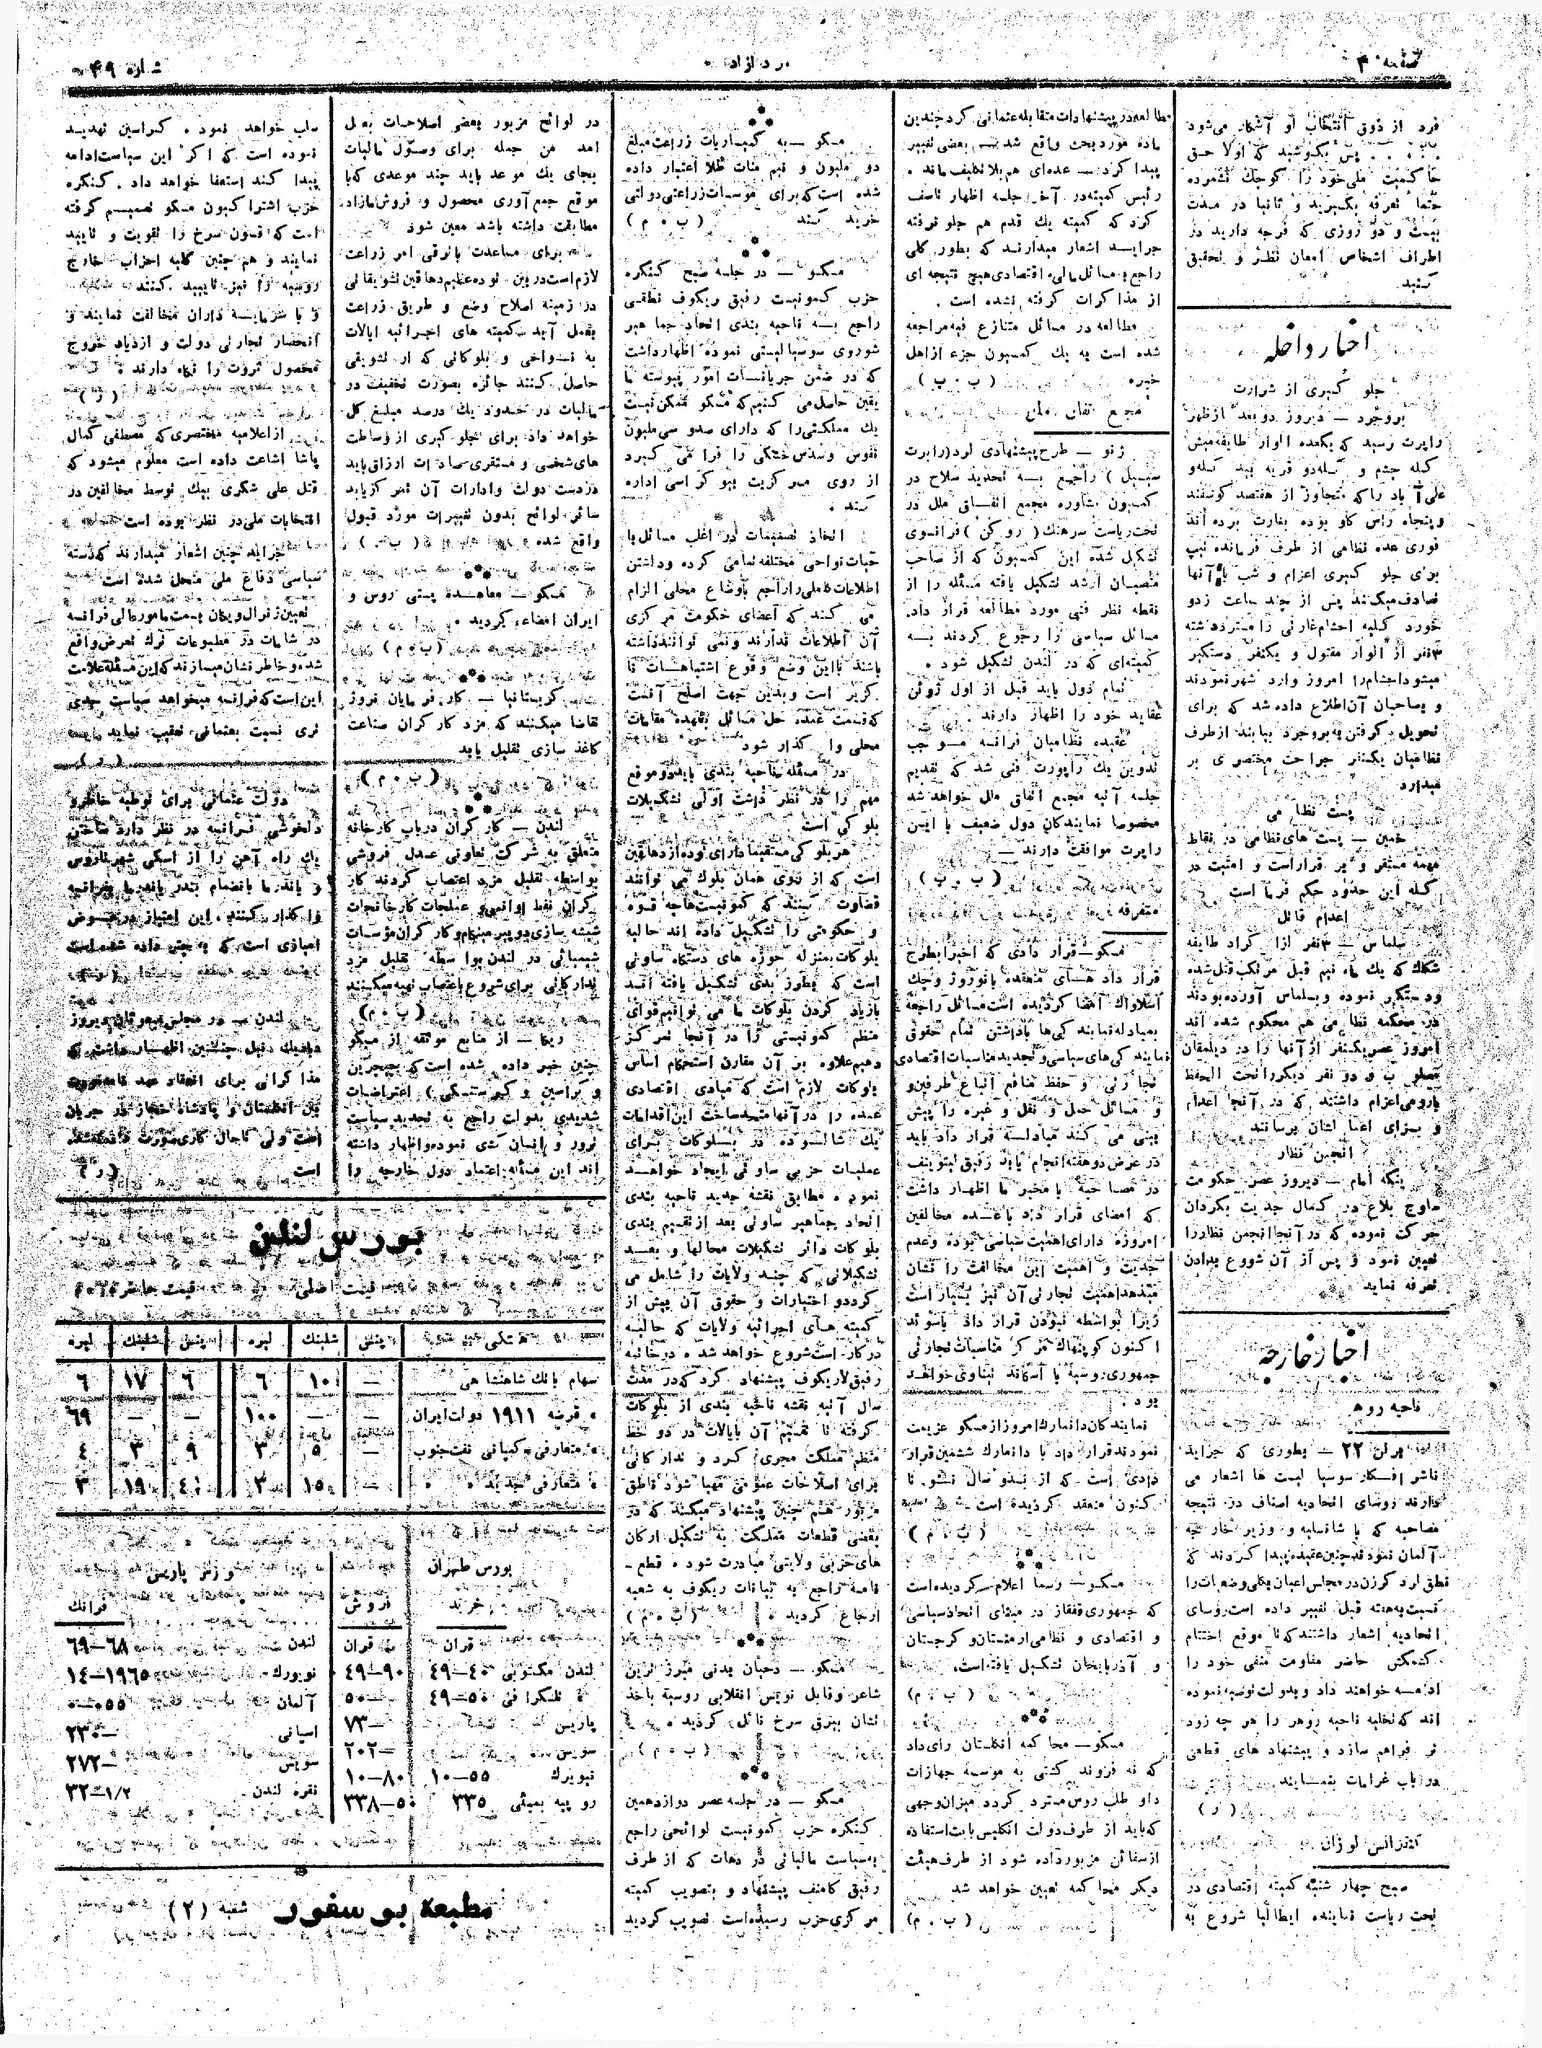 صفحه ۴
مرد آزاد
شماره ۴۹
فرد از ذوق انتخاب او آشکار می‌شود
پس بکوشید که اولا حق
حاکمیت ملی خود را کوچک نشمرده
حتما تعرفه بگیرید و ثانیا در مدت
بیست و دو روزی که فرجه دارید در
اطراف اشخاص امعان نظر و تحقیق
کنید
اخبار داخله
جلو گیری از شرارت
بروجرد — دیروز دو بعد از ظهر
راپرت رسید که یکعده الوار طایفه
علی آباد را که متجاوز از هفتصد گوسفند
و پنجاه راس گاو بوده بغارت برده اند
فوری عده نظامی از طرف فرمانده تیپ
برای جلو گیری اعزام و شب با آنها
تصادف میکنند پس از چند ساعت زد و
خورد کلیه احشام غارتی را مسترد داشته
۳ نفر از الوار مقتول و یکنفر دستگیر
میشود احشام را امروز وارد شهر نمودند
و بصاحبان آن اطلاع داده شد که برای
تحویل گرفتن به بروجرد بیایند از طرف
نظامیان یکنفر جراحت مختصری بر
میدارد
پست نظامی
خمین — پست های نظامی در نقاط
مهمه مستقر و بر قرار است و امنیت در
کلیه این حدود حکم فرما است
اعدام قاتل
سلماس — ۳ نفر از اکراد طایفه
شکاک که یک ماه نیم قبل مرتکب قتل شده
و دستگیر نموده و بسلماس آورده بودند
در محکمه نظامی هم محکوم شده اند
امروز عصر یکنفر از آنها را در دیلمقان
مصلوب و دو نفر دیگر را تحت الحفظ
بارومی اعزام داشتند که در آنجا اعدام
و بسزای اعمالشان برسانند
انجمن نظار
ینگه امام — دیروز عصر حکومت
ساوج بلاغ در کمال جدیت بکردان
حرکت نموده که در آنجا انجمن نظار را
تعیین نمود و پس از آن شروع بدادن
تعرفه نماید
اخبار خارجه
ناحیه روهر
برلن ۲۲ — بطوری که جراید
ناشر افکار سوسیا لیست ها اشعار می
دارند رؤسای اتحادیه اصناف در نتیجه
مصاحبه که با شانسلیه و وزیر خارجه
آلمان نموده‌اند چنین عقیده پیدا کردند که
نطق لرد کرزن در مجلس اعیان بکلی وضعیات را
نسبت به هفته قبل تغییر داده است رؤسای
اتحادیه اشعار داشتند که تا موقع اختتام
کشمکش حاضر مقاومت منفی خود را
ادامه خواهند داد و بدولت توصیه نموده
اند که تخلیه ناحیه روهر را هر چه زود
تر فراهم سازد و پیشنهاد های قطعی
در باب غرامات بنمایند
(ر)
کنفرانس لوزان
صبح چهار شنبه کمیته اقتصادی در
تحت ریاست نماینده ایطالیا شروع به
مطالعه در پیشنهادات متقابله عثمانی کرد چندین
ماده مورد بحث واقع شد — بعضی تغییر
پیدا کرد — عده‌ای هم بلا تکلیف ماند .
رئیس کمیته در آخر جلسه اظهار تاسف
کرد که کمیته یک قدم هم جلو نرفته
جراید اشعار میدارند که بطور کلی
راجع به مسائل مالی و اقتصادی هیچ نتیجه ای
از مذاکرات گرفته نشده است .
مطالعه در مسائل متنازع فیه مراجعه
شده است به یک کمسیون جزء از اهل
خبره
(ب . پ)
مجمع اتفاق ملل
ژنو — طرح پیشنهادی لرد (رابرت
سیسیل) راجع به تحدید سلاح در
کمسیون مشاوره مجمع اتفاق ملل در
تحت ریاست سرهنگ (رو کن) فرانسوی
تشکیل شده این کمسیون که از صاحب
منصبان ارشد تشکیل یافته مسئله را از
نقطه نظر فنی مورد مطالعه قرار داد.
مسائل سیاسی را رجوع کردند به
کمیته‌ای که در لندن تشکیل شود .
تمام دول باید قبل از اول ژوئن
عقاید خود را اظهار دارند .
عقیده نظامیان فرانسه موجب
تدوین یک راپورت فنی شد که تقدیم
جلسه آتیه مجمع اتفاق ملل خواهد شد
مخصوصا نمایندگان دول ضعیف با این
راپرت موافقت دارند —
(ب . پ)
متفرقه
مسکو — قرار دادی که اخیرا بطرح
قرار داد های منعقده با نوروژ و چک
اسلواک امضا گردیده است مسائل راجعه
بمبادله نمایندگی‌ها با داشتن تمام حقوق
نمایندگی های سیاسی و تجدید مناسبات اقتصادی
تجارتی و حفظ منافع اتباع طرفین و
و مسائل حمل و نقل و غیره را پیش
بینی می کند مبادله قرار داد باید
در عرض دو هفته انجام یابد رفیق لیتوینف
در مصاحبه با مخبر ما اظهار داشت
که امضای قرار داد با عده مخالفین
امروزه دارای اهمیت سیاسی بوده و عدم
جدیت و اهمیت این مخالفت را نشان
میدهد اهمیت تجارتی آن نیز بسیار است
زیرا بواسطه نبودن قرار داد
اکنون کوپنهاک مرکز مناسبات تجارتی
جمهوری روسیه با اسکاند نیناوی خواهد
بود .
نمایندگان دانمارک امروز از مسکو عزیمت
نمودند قرار داد با دانمارک ششمین قرار
دادی است که از بدو سال نو تا
کنون منعقد گردیده است —
(ب . م)
مسکو — رسما اعلام گردیده است
که جمهوری قفقاز در مبنای اتحاد سیاسی
و اقتصادی و نظامی ارمنستان و گرجستان
و آذربایجان تشکیل یافته است.
(ب . م)
مسکو — محاکمه انگلستان رای داد
که نه فروند کشتی به موسسه جهازات
داو طلب روس مسترد گردد میزان وجهی
که باید از طرف دولت انگلیس بابت استفاده
از سفائن مزبور داده شود از طرف هیئت
دیگر محاکمه تعیین خواهد شد
(ب . م)
مسکو — به کمیساریات زراعت مبلغ
دو ملیون و نیم منات طلا اعتبار داده
شده است که برای موسسات زراعتی دولتی
خرید کنند
(ب . م)
مسکو — در جلسه صبح کنگره
حزب کمونیست رفیق ریکوف نطقی
راجع به ناحیه بندی اتحاد جماهیر
شوروی سوسیالیستی نموده اظهار داشت
که در ضمن جریانات امور پیوسته ما
یقین حاصل می کنیم که مسکو ممکن نیست
یک مملکتی را که دارای صد و سی ملیون
نفوس و سدس خشکی را فرا می گیرد
از روی مرکزیت بیوکراسی اداره
کند .
اتخاذ تصمیمات در اغلب مسائل با
حیات نواحی مختلفه تماس کرده و داشتن
اطلاعات کاملی را راجع باوضاع محلی الزام
می کنند که اعضای حکومت مرکزی
آن اطلاعات ندارند و نمی توانند داشته
باشند با این وضع وقوع اشتباهات نا
گزیر است و بدین جهت اصلح آنست
که قسمت عمده حل مسائل بعهده مقامات
محلی وا گذار شود
در مسئله ناحیه بندی باید دو موقع
مهم را در نظر داشت اولی تشکیلات
بلوکی است
هر بلوکی مستقیما دارای توده از دهاقین
است که از روی همان بلوک می توانند
قضاوت کنند که کمونیست‌ها چه قوه
و حکومتی را تشکیل داده اند حالیه
بلوکات بمنزله حوزه های دستگاه ساوتی
است که بطور بدی تشکیل یافته اند
بازیاد کردن بلوکات ما می توانیم قوای
منظم کمونیستی را در آنجا تمرکز
دهیم علاوه بر آن مقارن استحکام اساس
بلوکات لازم است که مبادی اقتصادی
عمده را در آنها متحد ساخت این اقدامات
یک شالوده در بلوکات برای
عملیات حزبی ساوتی ایجاد خواهد
نمود . مطابق نقشه جدید ناحیه بندی
اتحاد جماهیر ساوتی بعد از تقسیم بندی
بلوکات دائر تشکیلات محالها و بعد
تشکیلاتی که چند ولایات را شامل می
گردد و اختیارات و حقوق آن بیش از
کمیته های اجرائیه ولایات که حالیه
در کار است شروع خواهد شد . در خاتمه
رفیق ریکوف پیشنهاد کرد که در مدت
سال آتیه نقشه ناحیه بندی از بلوکات
گرفته تا تقسیم آن بایالات در دو خط
منظم مملکت مجری گردد و تدارکاتی
برای اصلاحات عمومی مهیا شود ناطق
مزبور هم چنین پیشنهاد میکند که در
بعضی قطعات مملکت به تشکیل ارکان
های حزبی ولایتی مبادرت شود . قطع –
نامه راجع به بیانات ریکوف به شعبه
ارجاع گردید .
(ب . م)
مسکو — دمیان بدنی مبرز ترین
شاعر و قابل نویس انقلابی روسیه باخذ
نشان بیرق سرخ نائل گردید .
(ب . م)
مسکو — در جلسه عصر دوازدهمین
کنگره حزب کمونیست لوائحی راجع
به سیاست مالیاتی در دهات که از طرف
رفیق کامنف پیشنهاد و بتصویب کمیته
مرکزی حزب رسیده است تصویب گردید
در لوائح مزبور بعضی اصلاحات بعمل
آمد من جمله برای وصول مالیات
بجای یک موعد باید چند موعدی که با
موقع جمع آوری محصول و فروش مازاد
مطابقت داشته باشد معین شود
برای مساعدت با ترقی امر زراعت
لازم است در بین توده عظیم دهاقین تشویقاتی
در زمینه اصلاح وضع و طریق زراعت
بعمل آید کمیته های اجرائیه ایالات
به نواحی و بلوکاتی که
حاصل کنند جائزه بصورت تخفیف در
مالیات در حدود یک درصد مبلغ کل
خواهد داد برای جلو گیری از وساطت
های شخصی و مستقری صادرات ارزاق باید
در دست دولت و ادارات آن تمرکز یابد
سائر لوائح بدون تغییرات مورد قبول
واقع شده
مسکو — معاهده پستی روس و
ایران امضاء گردید .
(ب . م)
کریستانیا — کار فرمایان نروژ
تقاضا میکنند که مزد کارگران صناعت
کاغذ سازی تقلیل یابد
(ب . م)
لندن — کارگران در باب کارخانه
متعلق به شرکت تعاونی عمده فروشی
بواسطه تقلیل مزد اعتصاب کردند
شیمیائی در لندن بواسطه تقلیل مزد
تدارکاتی برای شروع باعتصاب تهیه میکنند
(ب . م)
ریگا — از منابع موثقه از مسکو
چنین خبر داده شده است که چیچرین
و کراسین و اعتراضات
شدیدی بدولت راجع به تجدید سیاست
ترور و انسان کشی نموده و اظهار داشته
اند این مسئله اعتماد دول خارجه را
سلب خواهد نمود . کراسین تهدید
نموده است که اگر این سیاست ادامه
پیدا کند استعفا خواهد داد . کنگره
حزب اشتراکیون مسکو تصمیم گرفته
است که قشون سرخ را تقویت و تایید
نمایند و هم چنین کلیه احزاب خارج
روسیه را نیز تایید کنند
و با سرمایه داران مخالفت نمایند و
انحصار تجارتی دولت و ازدیاد خروج
محصول ثروت را نگاه دارند .
(ر)
از اعلامیه مختصری که مصطفی کمال
پاشا اشاعت داده است معلوم میشود که
قتل علی شکری بیک توسط مخالفین در
انتخابات ملی در نظر بوده است
جراید چنین اشعار میدارند که دسته
سیاسی دفاع ملی منحل شده است
تعیین ژنرال ویگان بسمت مامور عالی فرانسه
در شامات در مطبوعات ترک تعرض واقع
شده و خاطر نشان میسازند که این مسئله علامت
این است که فرانسه میخواهد سیاست جدی
تری نسبت بعثمانی تعقیب نماید
(ر)
دولت عثمانی برای توطیه خاطر و
دلخوشی فرانسه در نظر دارد ساختن
یک راه آهن را از اسکی شهر
و پاندرما بانضمام بندر پاندرما بفرانسه
واگذار کند. این امتیاز در عوض
امتیازی است که به چستر داده شده است
(ر)
لندن — در مجلس مبعوثان دیروز
چنین اظهار داشت که
مذاکراتی برای انعقاد عهد نامه مودت
بین انگلستان و پادشاه حجاز در جریان
است ولی تا حال کاری صورت نگرفته
است
(ر)
بورس لندن
قیمت اصلی
قیمت حاضر
پنس شلینک لیره پنس شلینک لیره
سهام بانک شاهنشاهی — ۱۰ ۶ ۶ ۱۷ ۶
» قرضه ۱۹۱۱ دولت ایران — — ۱۰۰ — — ۶۹
» متعارفی کمپانی نفت جنوب — ۵ ۳ ۹ ۳ ۴
» متعارفی جدید » » — ۱۵ ۳ ۴ ۱۹ ۳
بورس طهران
خرید فروش
قران قران
لندن مکتوبی ۴۰—۴۹ ۹۰—۴۹
» تلگرافی ۵۰—۴۹ —۵۰
پاریس —۷۳
سویس —۲۰۲
نیویرک ۵۵—۱۰ ۸۰—۱۰
روپیه بمبئی ۳۳۵ ۵۰—۳۳۸
بورس پاریس
فرانک
لندن ۶۸—۶۹
نویورک ۱۹۶۵—۱۴
آلمان ۰۰۵۵—۰
اسپانی —۲۳۰
سویس —۲۷۲
نقره لندن ۱/۲—۳۲
مطبعه بوسفور شعبه (۲)